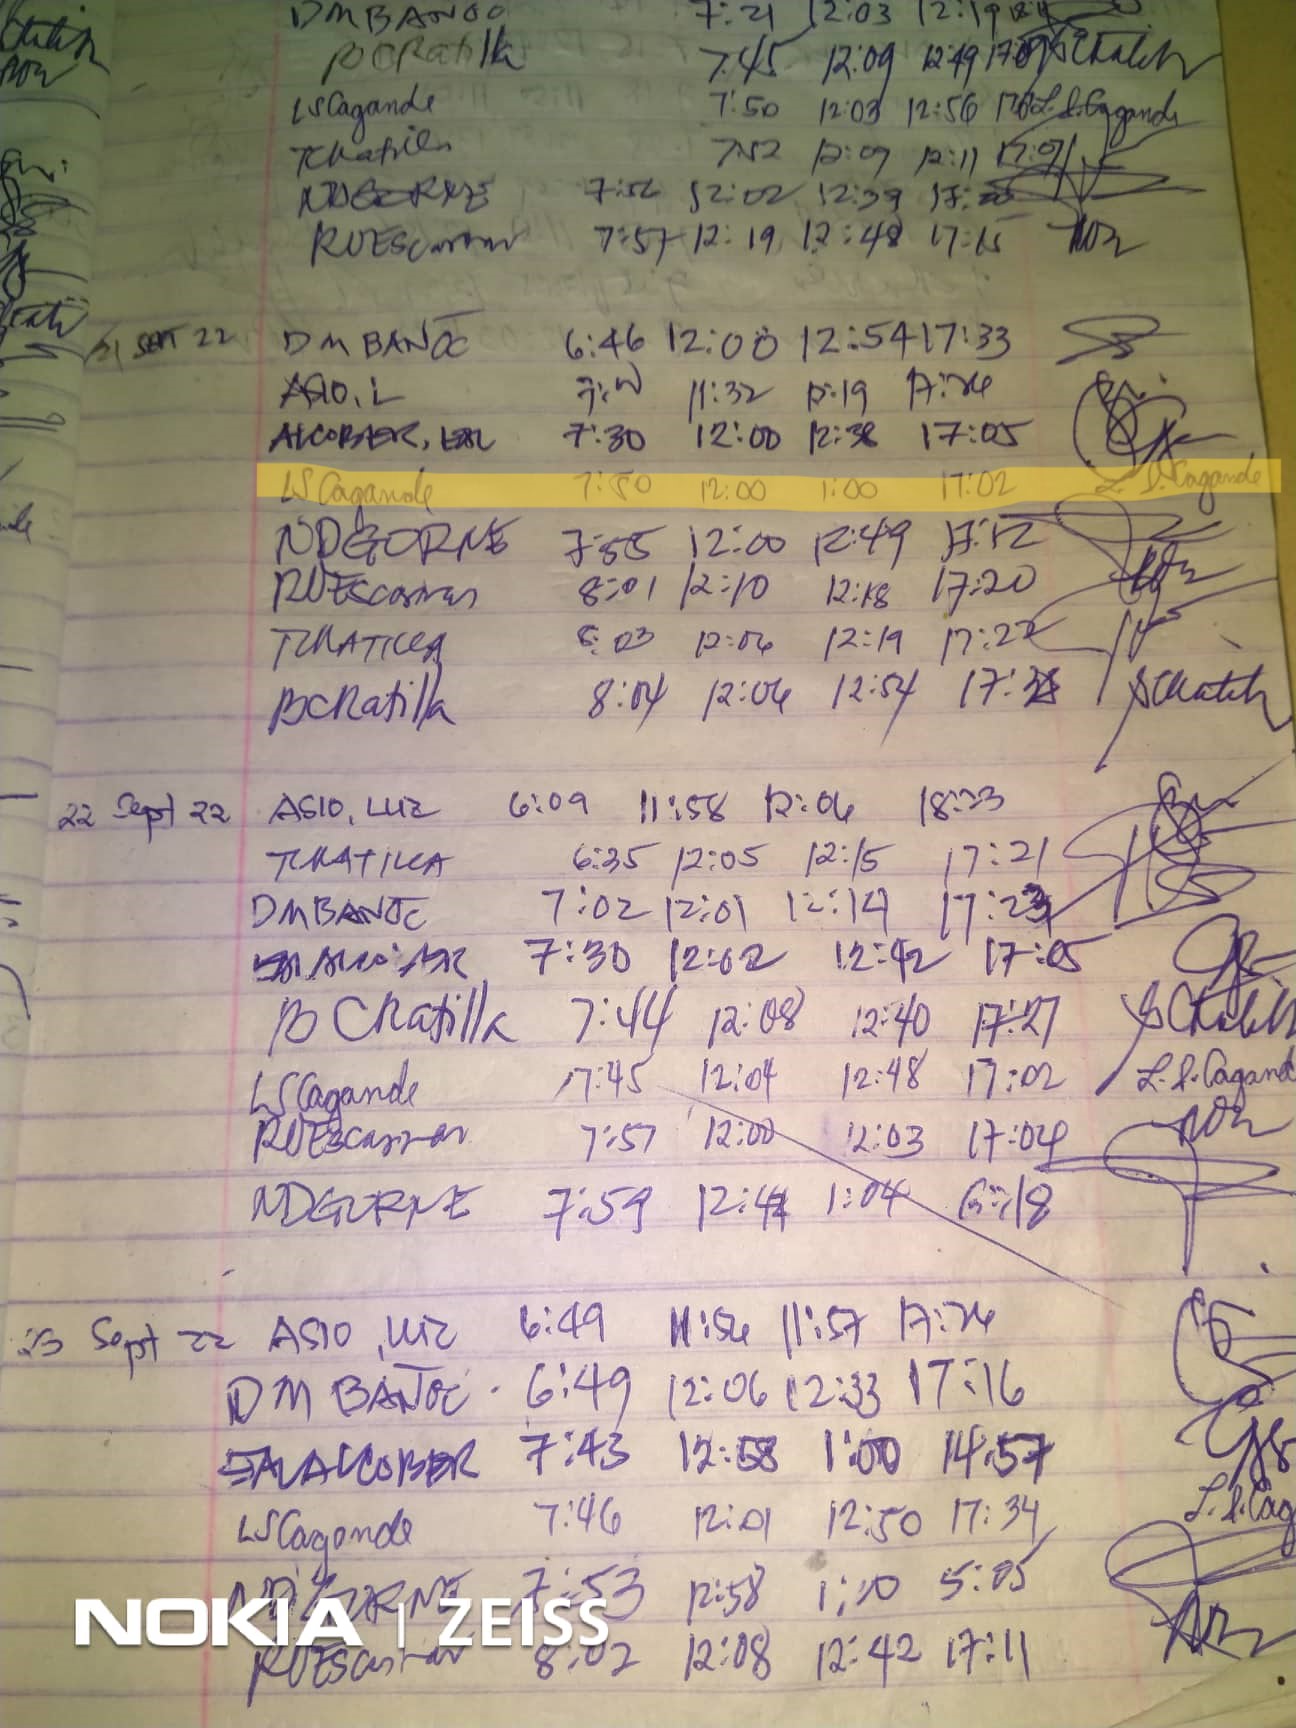 DM BANOC 7:21 12:03 12:19
BCRatilla 7:45 12:09 12:49
LSCagande 7:50 12:03 12:56 L. S. Cagande
7:52 12:07 12:11 17:07
NDGORNE 7:56 12:02 12:39
RVEscasinas 7:57 12:19 12:48 17:15
21 SEPT 22 DM BAÑOC 6:46 12:00 12:54 17:33
ASIO, L 11:32 12:19 17:26
ALCOBER, 7:30 12:00 12:38 17:05
LSCagande 7:50 12:00 1:00 17:02 L. S. Cagande
NDGORNE 7:55 12:00 12:49 17:12
RVEscasinas 8:01 12:10 12:18 17:20
TCRATILLA 8:03 12:06 12:19 17:22
BCRatilla 8:04 12:06 12:54
22 Sept 22 ASIO, LUZ 6:09 11:58 12:06 18:33
TCRATILLA 6:35 12:05 12:15 17:21
DMBAÑOC 7:02 12:01 12:14
ALCOBER 7:30 12:02 12:42 17:05
BCRatilla 7:44 12:08 12:40 17:27
LSCagande 7:45 12:04 12:48 17:02 L. S. Cagand
RVEscasinas 7:57 12:00 12:03 17:04
NDGORNE 7:59 1:04
23 Sept 22 ASIO, LUZ 6:49 11:56 11:57 17:26
DM BAÑOC 6:49 12:06 12:33 17:16
ALCOBER 7:43 12:58 1:00 14:57
LSCagande 7:46 12:01 12:50 17:34 L. S. Cag
NDGORNE 7:53 12:58 1:10 5:05
NOKIA | ZEISS
RVEscasinas 8:02 12:08 12:42 17:11